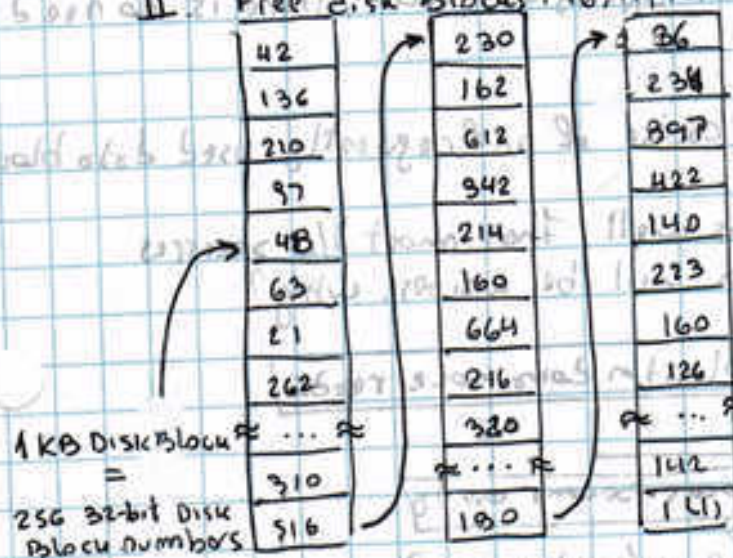 II Free disk Blocks
42
136
210
97
48
63
21
262
...
310
516
230
162
612
342
214
160
664
216
320
...
180
86
234
897
422
140
223
160
126
...
142
141
1 KB Disk Block
=
256 32-bit Disk
Block numbers